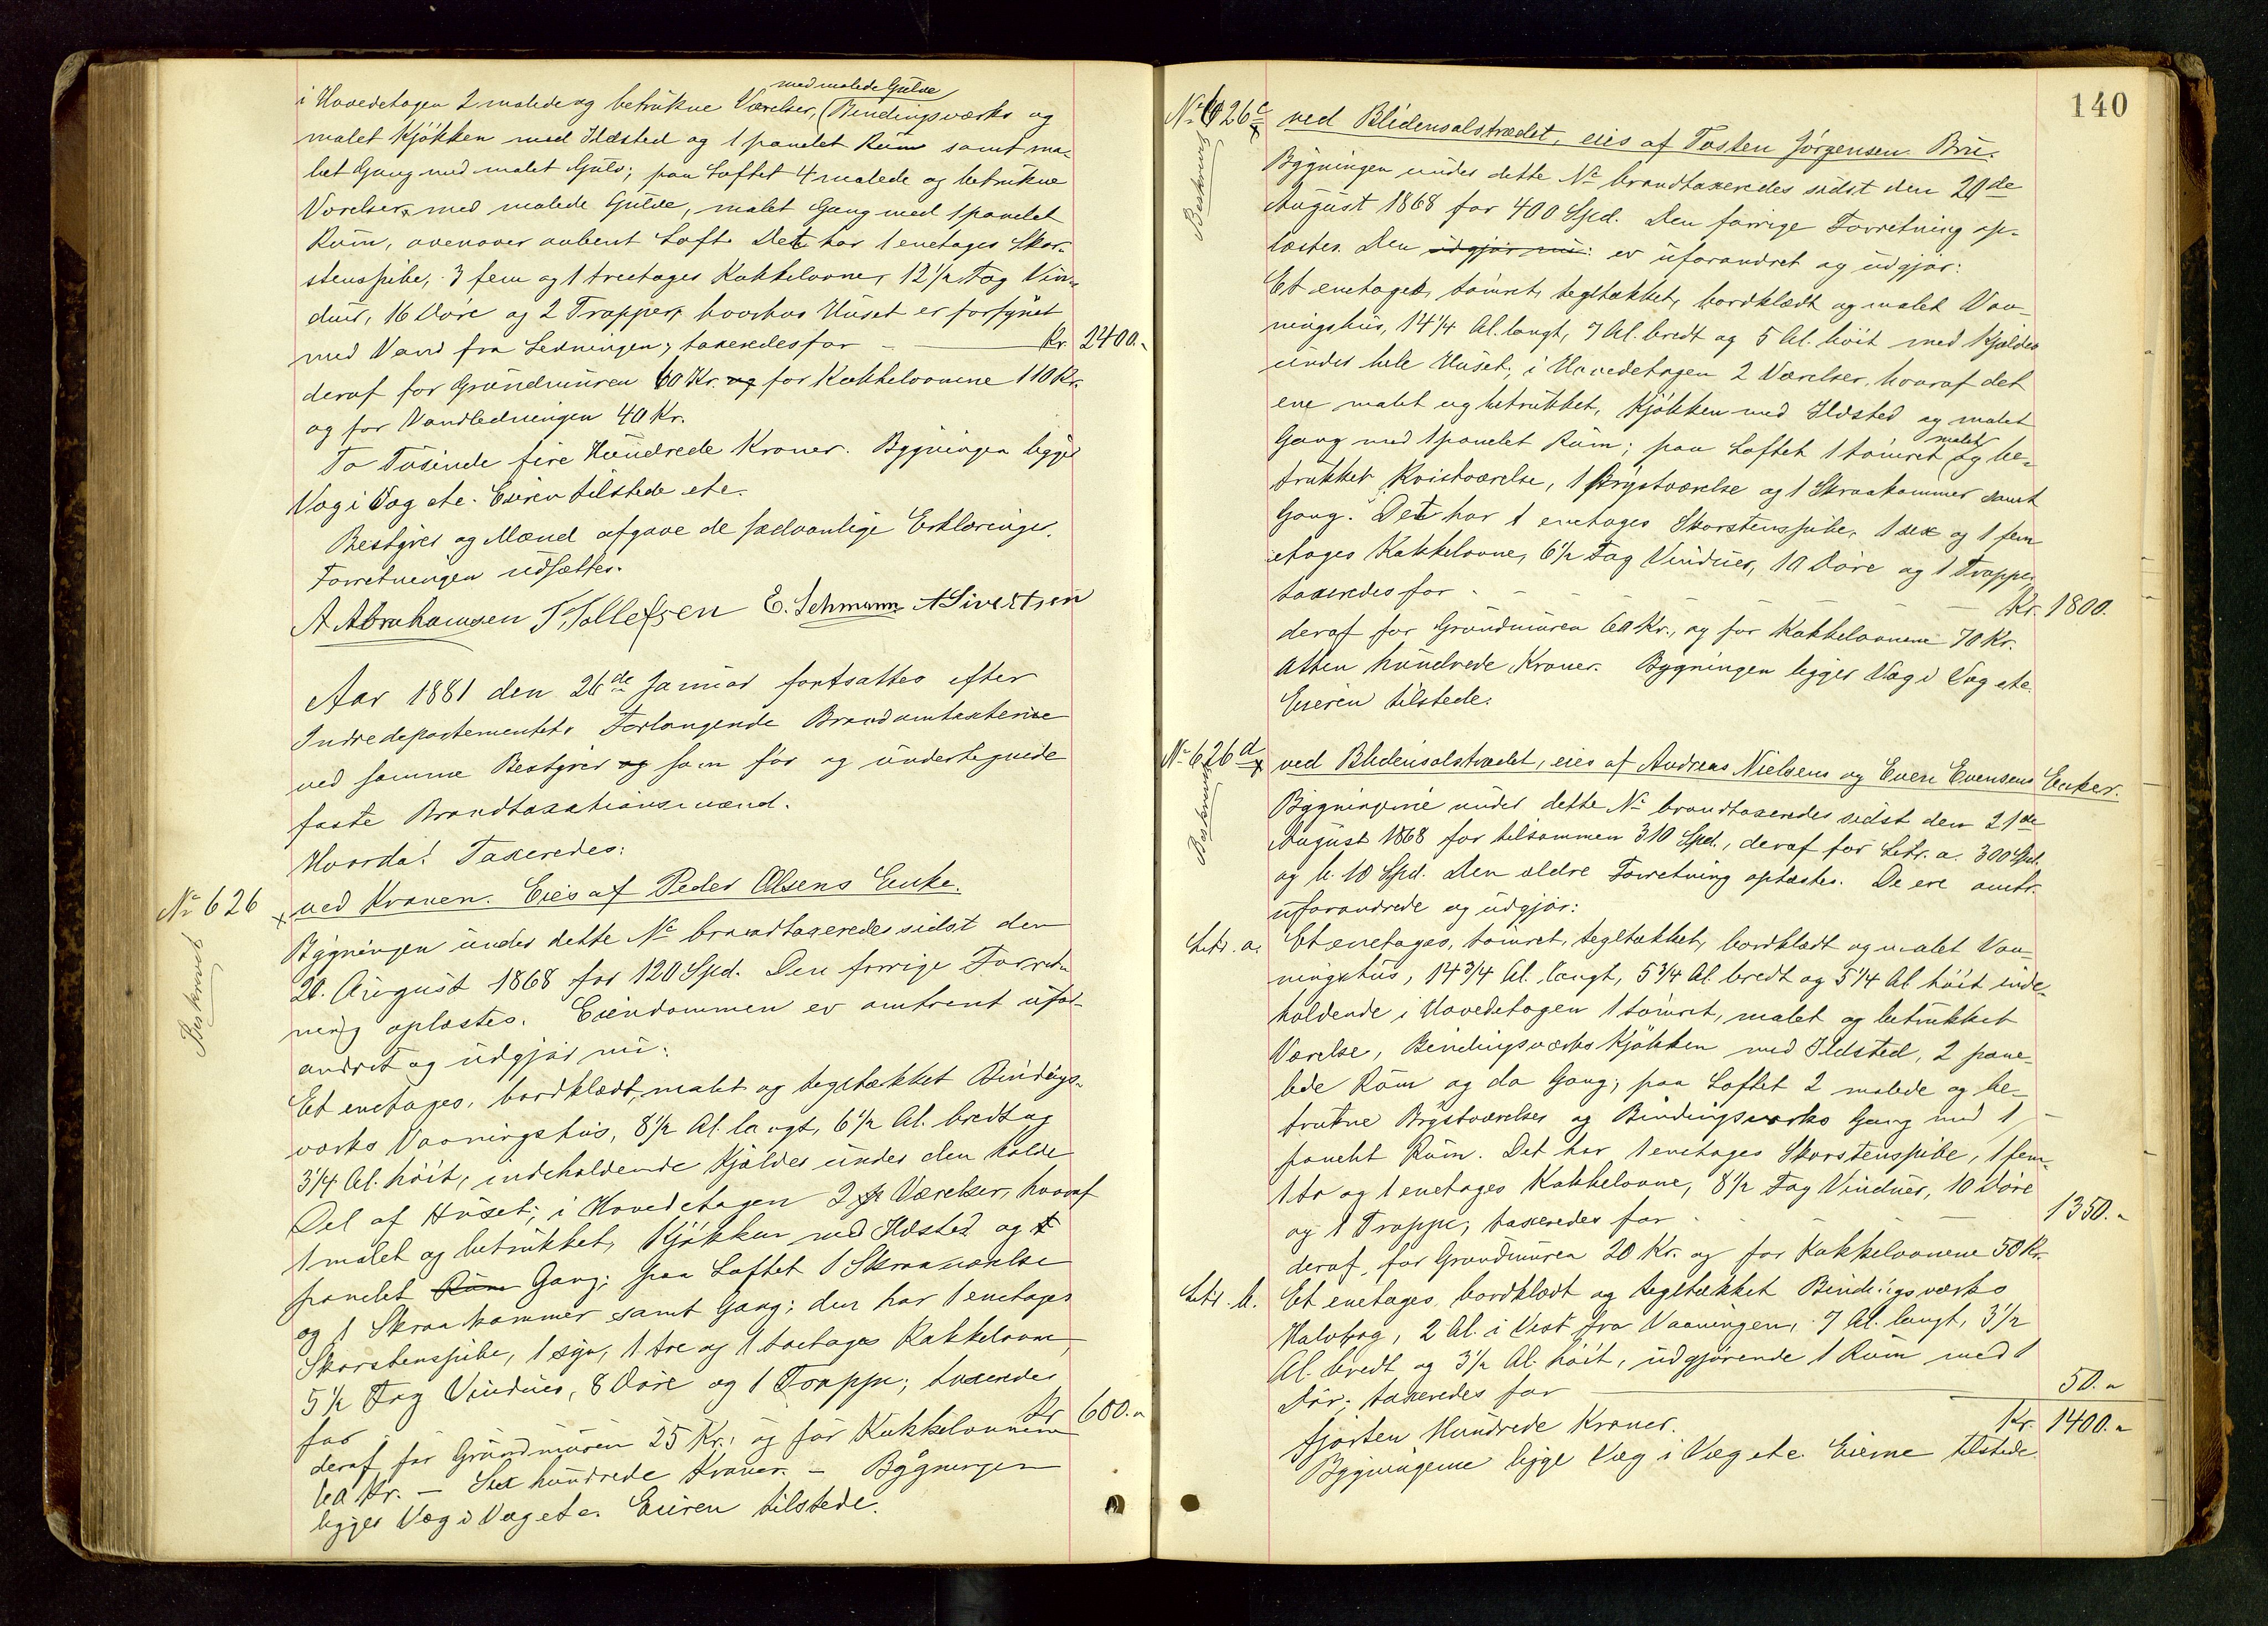 i Hovedetagen 2 malede og betrukne Værelser, (Bindingsværks og
med malede Gulve
malet Kjøkken med Ildsted og 1 panelet Rum samt ma-
let Gang med malet Gulv; paa Loftet 4 malede og betrukne
Værelser med malede Gulve, malet Gang med 1 panelet
Rum, ovenover aabent Loft. Det har 1 enetages Skor-
stenspibe, 3 fem og 1 treetages Kakkelovne, 12 1/2 Fag Vin-
duer, 16 Døre og 2 Trapper, hvorhos Huset er forsynet
med Vand fra Ledningen; taxeredes for - Kr. 2400.-
deraf for Grundmuren 60 Kr. og for Kakkelovnene 110 Kr.
og for Vandledningen 40 Kr.
To Tusinde fire Hundrede Kroner. Bygningen ligger
Væg i Væg etc. Eieren tilstede etc.
Bestyrer og Mænd afgave de sædvanlige Erklæringer.
Forretningen udsættes.
A Abrahamsen T. Tollefsen E. Lehmann A Sivertsen
Aar 1881 den 26de Januar fortsattes efter
Indredepartementets Forlangende Brandomtaxterne
ved samme Bestyrer og som før og undertegnede
faste Brandtaxationsmænd.
Hvorda! Taxeredes:
No 626 x ved Kranen. Eies af Peder Olsens Enke.
Beskrevet
Bygningen under dette No brandtaxeredes sidst den
20. August 1868 for 120 Spd. Den forrige Forret-
ning oplæstes. Eiendommen er omtrent ufor-
andret og udgjør nu:
Et enetages, bordklædt, malet og tegltækket Bindings-
værks Vaaningshus, 8 1/2 Al. langt, 6 1/2 Al. bredt og
3 1/4 Al. høit, indeholdende Kjælder under den halve
Del af Huset; i Hovedetagen 2 Værelser, hvoraf
1 malet og betrukket, Kjøkken med Ildsted og
panelet Rum Gang; paa Loftet 1 Skraaværelse
og 1 Skraakammer samt Gang; den har 1 enetages
Skorstenspibe, 1 syv, 1 tre og 1 toetages Kakkelovne,
5 1/2 Fag Vinduer, 8 Døre og 1 Trappe; taxeredes
for Kr. 600.-
deraf for Grundmuren 25 Kr. og for Kakkelovnene
60 Kr. - Sex hundrede Kroner. - Bygningen
ligger Væg i Væg etc. Eieren tilstede.
140
No 626c x ved Blidensolstrædet, eies af Tosten Jørgensen Bru.
Beskrevet
Bygningen under dette No brandtaxeredes sidst den 20de
August 1868 for 400 Spd. Den forrige Forretning op-
læstes. Den udgjør nu: er uforandret og udgjør:
Et enetages, tømret, tegltækket, bordklædt og malet Vaa-
ningshus, 14 1/4 Al. langt, 7 Al. bredt og 5 Al. høit med Kjælder
under hele Huset; i Hovedetagen 2 Værelser, hvoraf det
ene malet og betrukket, Kjøkken med Ildsted og malet
Gang med 1 panelet Rum; paa Loftet 1 tømret (og be-
malet
trukket Kvistværelse, 1 Brystværelse og 1 Skraakammer samt
Gang. Det har 1 enetages Skorstenspibe, 1 sex og 1 fem
etages Kakkelovne, 6 1/2 Fag Vinduer, 10 Døre og 1 Trappe,
taxeredes for - - - - Kr. 1800.
deraf for Grundmuren 60 Kr., og for Kakkelovnene 70 Kr.
Atten hundrede Kroner. Bygningen ligger Væg i Væg etc.
Eieren tilstede.
No 626d x ved Blidensolstrædet, eies af Andreas Nielsens og Even Evensens Enker.
Beskrevet
Bygningerne under dette No brandtaxeredes sidst den 21de
August 1868 for tilsammen 310 Spd., deraf for Litr. a. 300 Spd.
og b. 10 Spd. Den ældre Forretning oplæstes. De ere omtr.
uforandrede og udgjør:
Litr. a. Et enetages, tømret, tegltækket, bordklædt og malet Vaa-
ningshus, 14 3/4 Al. langt, 5 3/4 Al. bredt og 5 1/4 Al. høit inde-
holdende i Hovedetagen 1 tømret, malet og betrukket
Værelse, Bindingsværks Kjøkken med Ildsted, 2 pane-
lede Rum og do Gang; paa Loftet 2 malede og be-
trukne Brystværelser og Bindingsværks Gang med 1
panelet Rum. Det har 1 enetages Skorstenspibe, 1 fem-
1 to og 1 enetages Kakkelovne, 8 1/2 Fag Vinduer, 10 Døre
og 1 Trappe; taxeredes for - - 1350.-
deraf for Grundmuren 20 Kr. og for Kakkelovnene 50 Kr.
Litr. b. Et enetages bordklædt og tegltækket Bindingsværks
Halvtag, 2 Al. i Vest fra Vaaningen, 7 Al. langt, 3 1/2
Al. bredt og 3 1/2 Al. høit, udgjørende 1 Rum med 1
Dør; taxeredes for 50.-
Kr. 1400.-
fjorten Hundrede Kroner.
Bygningerne ligge Væg i Væg etc. Eierne tilstede.